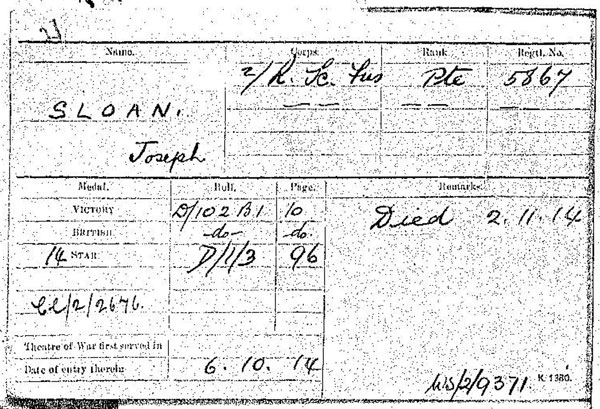 Name. Corps. Rank. Regtl. No.
SLOAN. 2/R. Sc. Fus Pte 5867
Joseph
Medal. Roll. Page. Remarks.
VICTORY D/102 B1 10 Died 2.11.14
BRITISH -do- do.
14 STAR D/1/3 96
CL/2/2676.
Theatre of War first served in
Date of entry therein 6. 10. 14
WS/2/9371 K. 1380.